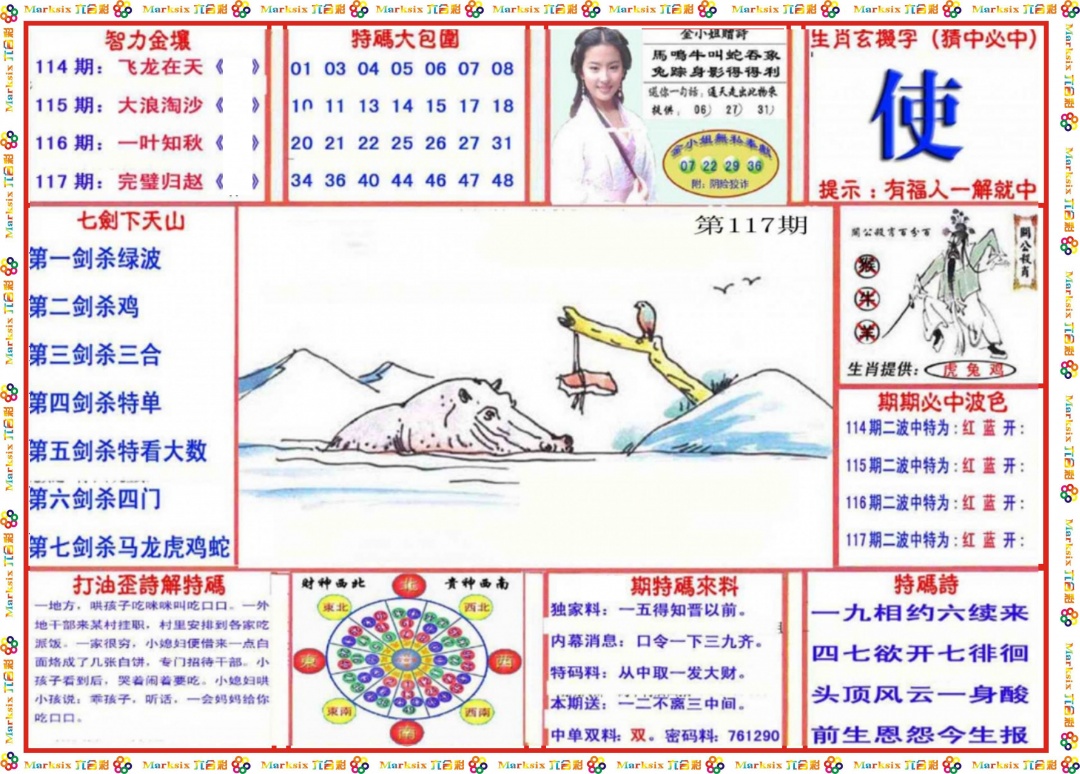 Marksix 六合彩
智力金壤
114期：飞龙在天《 》
115期：大浪淘沙《 》
116期：一叶知秋《 》
117期：完璧归赵《 》
特碼大包圍
01 03 04 05 06 07 08
10 11 13 14 15 17 18
20 21 22 25 26 27 31
34 36 40 44 46 47 48
金小姐赠詩
馬鳴牛叫蛇吞象
兔踪身影得得利
送你一句话：通天走出此物来
提供：06） 27） 31）
金小姐無私奉獻
07 22 29 36
附：阴险狡诈
生肖玄機字（猜中必中）
使
提示：有福人一解就中
七劍下天山
第一剑杀绿波
第二剑杀鸡
第三剑杀三合
第四剑杀特单
第五剑杀特看大数
第六剑杀四门
第七剑杀马龙虎鸡蛇
第117期
關公殺肖百分百
關公殺肖
猴
牛
羊
生肖提供：虎 兔 鸡
期期必中波色
114期二波中特为：红 蓝 开：
115期二波中特为：红 蓝 开：
116期二波中特为：红 蓝 开：
117期二波中特为：红 蓝 开：
打油歪詩解特碼
一地方，哄孩子吃咪咪叫吃口口。一外
地干部来某村挂职，村里安排到各家吃
派饭。一家很穷，小媳妇便借来一点白
面烙成了几张白饼，专门招待干部。小
孩子看到后，哭着闹着要吃。小媳妇哄
小孩说：乖孩子，听话，一会妈妈给你
吃口口。
財神西北 北 貴神西南
東北 西北
東 西
東南 西南
南
期特碼來料
独家料：一五得知晋以前。
内幕消息：口令一下三九齐。
特码料：从中取一发大财。
本期送：一二不离三中间。
中单双料：双。密码料：761290
特碼詩
一九相约六续来
四七欲开七徘徊
头顶风云一身酸
前生恩怨今生报